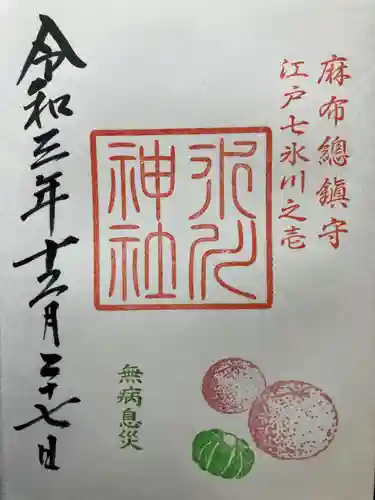 麻布總鎮守
江戸七氷川之壱
氷川
神社
無病息災
令和三年十二月二十七日